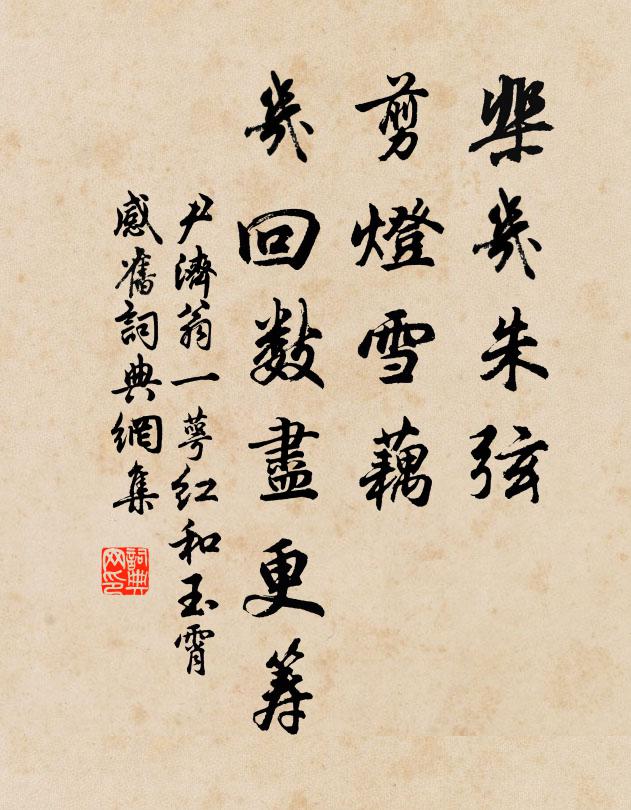 棐幾朱弦
剪燈雪藕
幾回數盡更籌
尹濟翁一萼紅和玉霄
感舊詞典網集
詞典网印